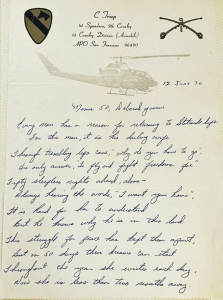 C Troop
1st Squadron, 9th Cavalry
1st Cavalry Division (Airmobile)
APO San Francisco
96490
9
12 June 70
Every man has a reason for returning to Stateside life
For the man, it is his darling wife
Through trembling lips came, "why do you have to go".
The only answer, to fly and fight freedom's foe"
Fifty sleepless nights ached, alone -
Always hearing the words, "I want you home",
It is hard for to understand
but he knows why he is in this land
This struggle for peace has kept them apart,
but in 50 days their dreams can start
Throughout the year she waits each day,
Now she is less than two months away